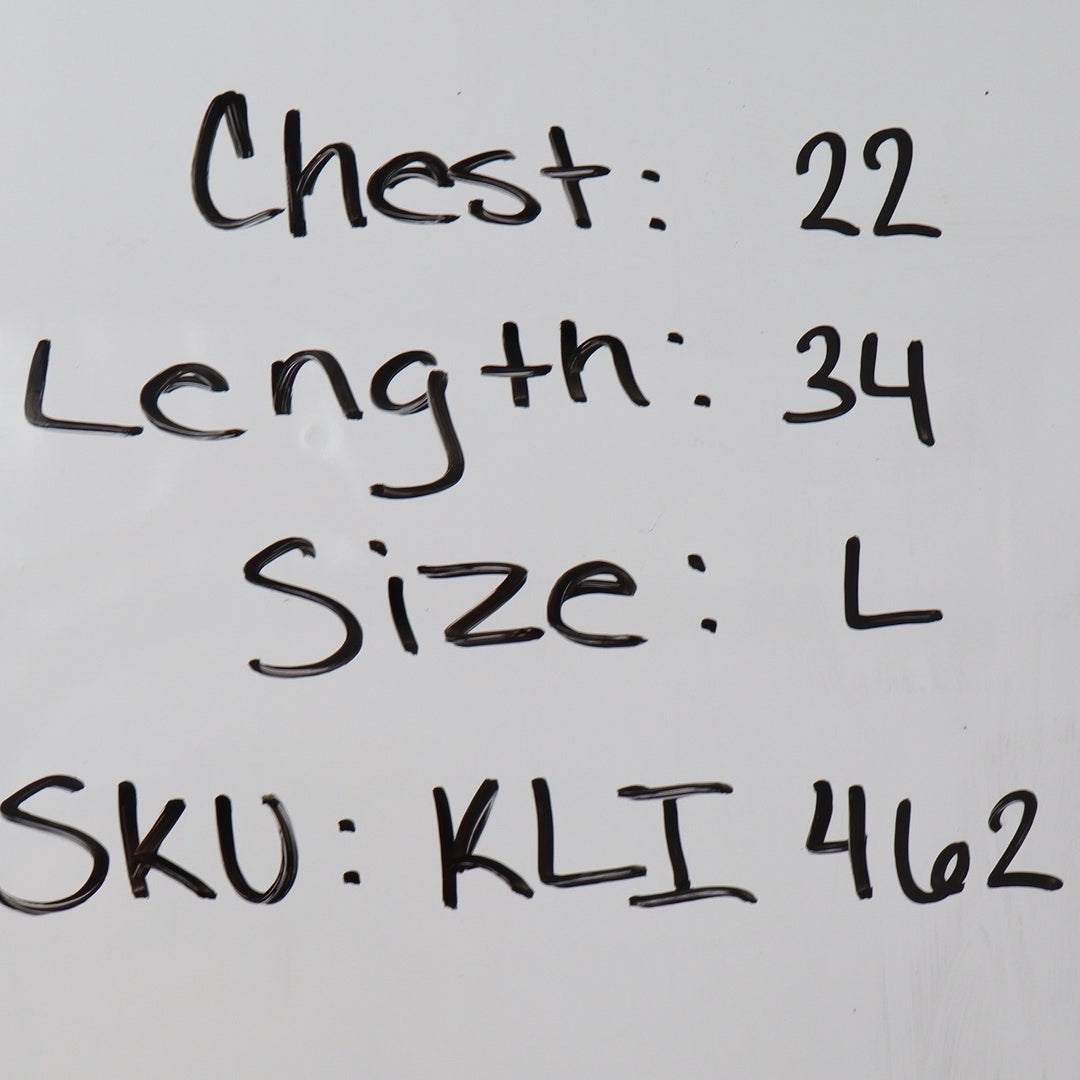 Chest: 22
Length: 34
Size: L
SKU: KLI 462